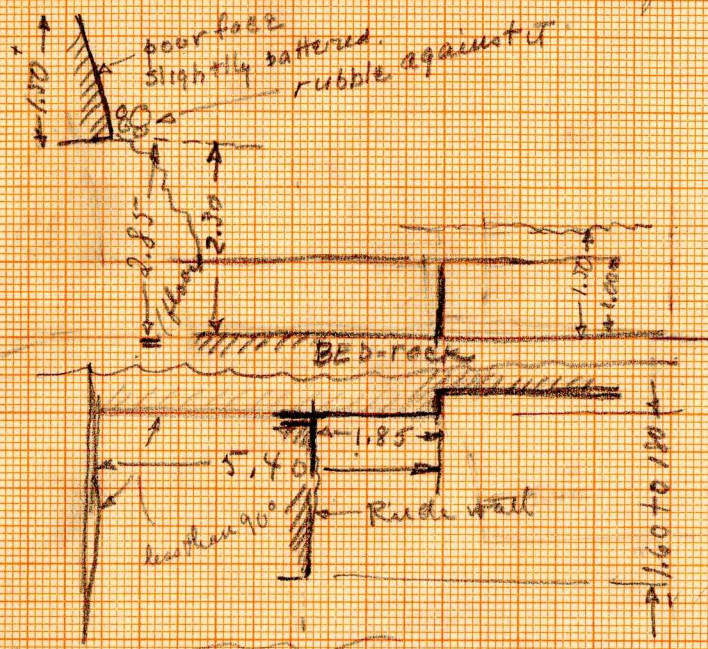 poor face
slightly battered.
rubble against it
1.50
2.85
2.30
(floor
1.50
1.00
BED-rock
1.85
5.40
Rude wall
less than 90°
1.60 to 1.80